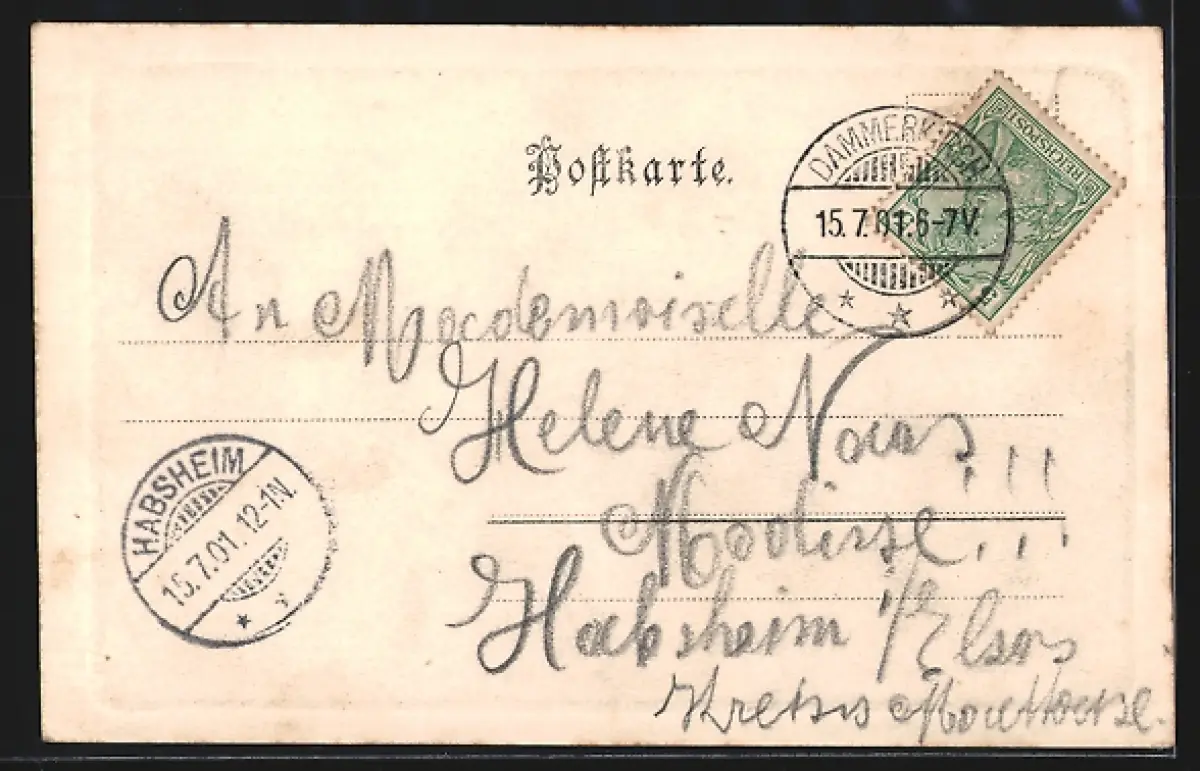 Postkarte.
DAMMERKIRCH
15.7.01.6-7V.
c
REICHSPOST
An Mademoiselle
Helene Naas, !!!
Modisse...
Habsheim i/Elsas
HABSHEIM
15.7.01.12-1N.
Kreiss